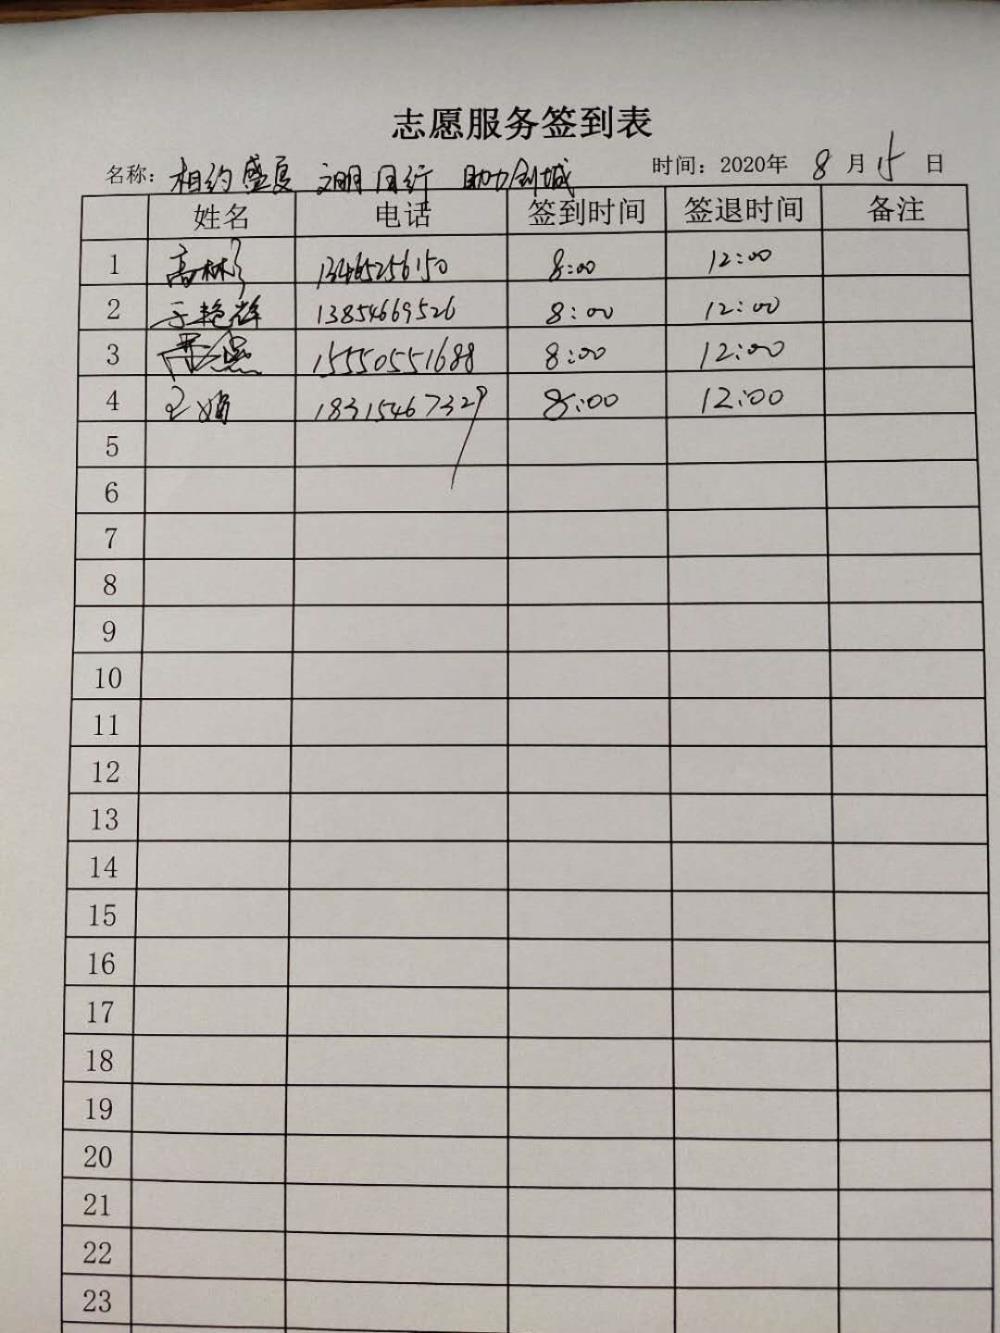 志愿服务签到表
名称：相约盛夏 文明同行 助力创城 时间：2020年 8 月 15 日
姓名 电话 签到时间 签退时间 备注
1 高林 13465256150 8:00 12:00
2 于艳辉 13854669526 8:00 12:00
3 15550551688 8:00 12:00
4 王娟 18315467329 8:00 12:00
5
6
7
8
9
10
11
12
13
14
15
16
17
18
19
20
21
22
23